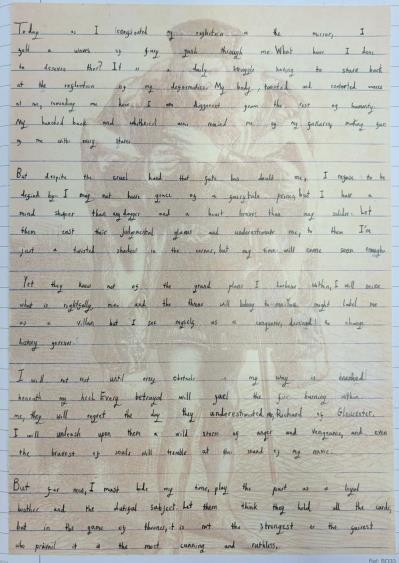 Today as I recognised my reflection in the mirror, I
felt a waves of fury gush through me. What have I done
to deserve this? It is a daily struggle having to stare back
at the reflection of my deformities. My body, twisted and contorted
at me, reminding me how I am different from the rest of humanity.
My hunched back and withered arm remind me of my
me with every stare.
But despite the cruel hand that fate has dealt me, I refuse to be
defined by. I may not have grace of a fairytale prince, but I have a
mind sharper than any dagger and a heart braver than any soldier. Let
them cast their judgemental glances and underestimate me, to them I'm
just a twisted shadow in the corner, but my time will come soon enough.
Yet they know not of the grand plans I harbour within, I will seize
what is rightfully mine and the throne will belong to me. They might label me
as a villan but I see myself as a conqueror, destined to change
history forever.
I will not rest until every obstacle in my way is crushed
beneath my heel. Every betrayal will fuel the fire burning within
me, they will regret the day they underestimated me, Richard of Gloucester.
I will unleash upon them a wild storm of anger and vengeance, and even
the bravest of souls will tremble at the sound of my name.
But for now, I must bide my time, play the part as a loyal
brother and the dutiful subject. Let them think they hold all the cards,
but in the game of thrones, it is not the strongest or the fairest
who prevail it is the most cunning and ruthless.